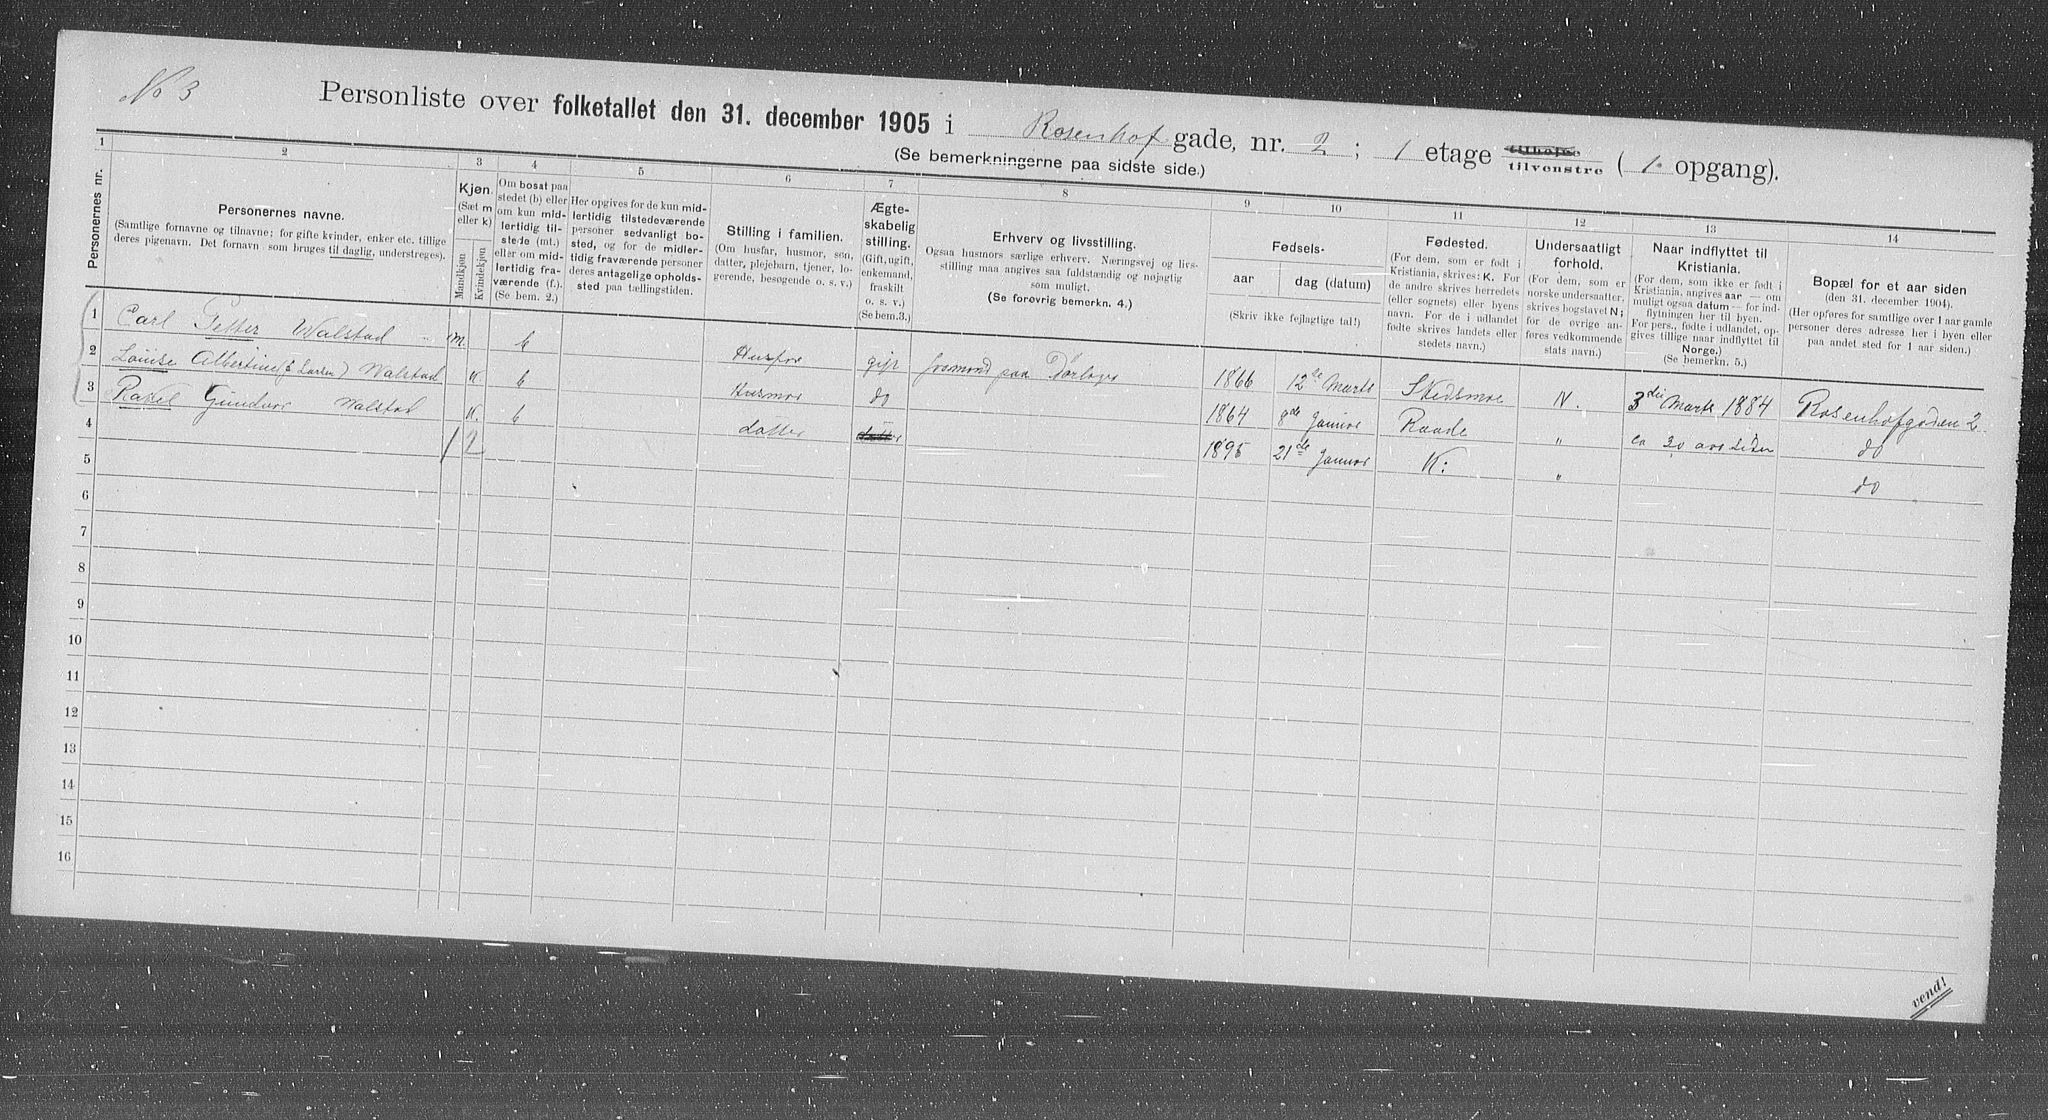 No 3
Personliste over folketallet den 31. december 1905 i Rosenhof gade, nr. 2 ; 1 etage tilhøire tilvenstre ( 1. opgang).
(Se bemerkningerne paa sidste side.)
1 2 3 4 5 6 7 8 9 10 11 12 13 14
Personernes nr.
Personernes navne.
(Samtlige fornavne og tilnavne; for gifte kvinder, enker etc. tillige
deres pigenavn. Det fornavn som bruges til daglig, understreges).
Kjøn.
(Sæt m
eller k)
Mandkjøn
Kvindekjøn
Om bosat paa
stedet (b) eller
om kun mid-
lertidig til-
stede (mt.)
eller om mid-
lertidig fra-
værende (f.).
(Se bem. 2.)
Her opgives for de kun mid-
lertidig tilstedeværende
personer sedvanligt bo-
sted, og for de midler-
tidig fraværende personer
deres antagelige opholds-
sted paa tællingstiden.
Stilling i familien.
(Om husfar, husmor, søn,
datter, plejebarn, tjener, lo-
gerende, besøgende o. s. v.)
Ægte-
skabelig
stilling.
(Gift, ugift,
enkemand,
fraskilt
o. s. v.)
(Se bem.3.)
Erhverv og livsstilling.
Ogsaa husmors særlige erhverv. Næringsvej og livs-
stilling maa angives saa fuldstændig og nøjagtig
som muligt.
(Se forøvrig bemerkn. 4.)
Fødsels-
aar
dag (datum)
(Skriv ikke fejlagtige tal!)
Fødested.
(For dem, som er født i
Kristiania, skrives: K. For
de andre skrives herredets
(eller sognets) eller byens
navn. For de i udlandet
fødte skrives landets eller
stedets navn.)
Undersaatligt
forhold.
(For dem, som er
norske undersaatter,
skrives bogstavet N;
for de øvrige an-
føres vedkommende
stats navn.)
Naar indflyttet til
Kristiania.
(For dem, som ikke er født i
Kristiania, angives aar — om
muligt ogsaa datum — for ind-
flytningen her til byen.
For pers., fødte i udlandet, op-
gives tillige naar indflyttet til
Norge.)
(Se bemerkn. 5.)
Bopæl for et aar siden
(den 31. december 1904).
(Her opføres for samtlige over 1 aar gamle
personer deres adresse her i byen eller
paa andet sted for 1 aar siden.)
1 Carl Petter Walstad m. b Husfar gift formand paa Törlager 1866 12te Marts Skedsmoe N. 3die Marts 1884 Rosenhofgaden 2
2 Louise Albertine (f Larsen) Walstad K. b Husmor do 1864 8de Januar Raade " ca 20 aar siden do
3 Rakel Gundvor Walstad K. b datter datter 1895 21de Januar K: " do
4 1 2
5
6
7
8
9
10
11
12
13
14
15
16
vend!